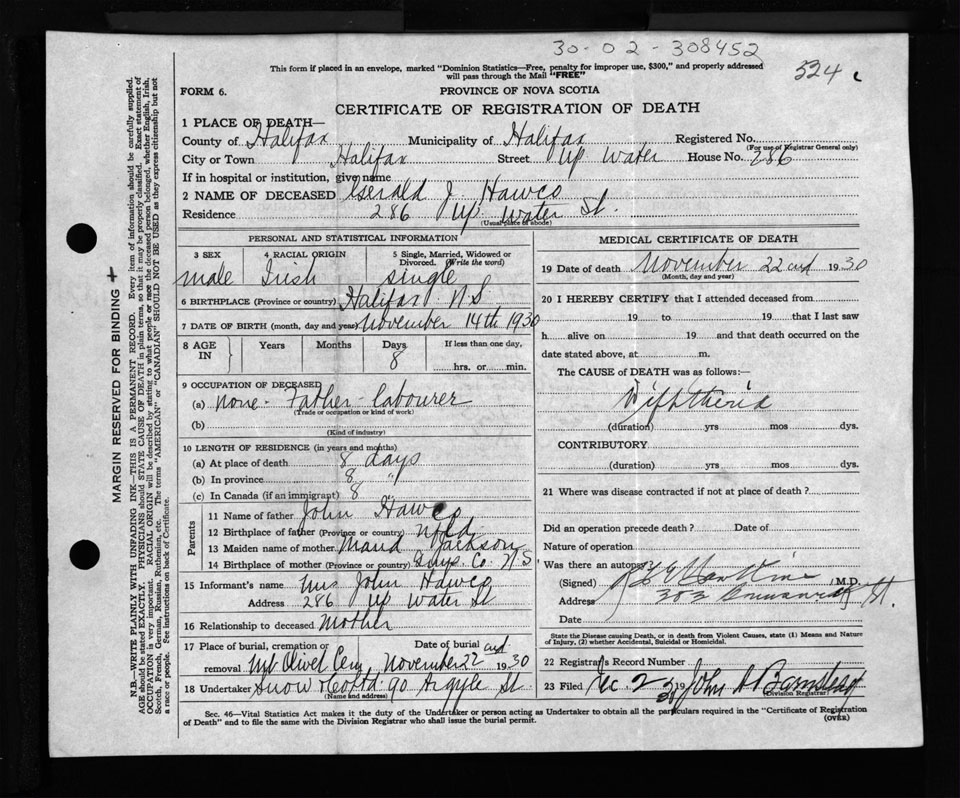 30-02-308452
This form if placed in an envelope, marked "Dominion Statistics—Free, penalty for improper use, $300," and properly addressed
will pass through the Mail "FREE"
324 c
FORM 6.
PROVINCE OF NOVA SCOTIA
CERTIFICATE OF REGISTRATION OF DEATH
1 PLACE OF DEATH—
County of Halifax Municipality of Halifax Registered No.
(For use of Registrar General only)
City or Town Halifax Street Up Water House No. 286
If in hospital or institution, give name
2 NAME OF DECEASED Gerald J. Hawco
Residence 286 Up Water St.
(Usual place of abode)
PERSONAL AND STATISTICAL INFORMATION
3 SEX 4 RACIAL ORIGIN 5 Single, Married, Widowed or Divorced. (Write the word)
male Irish single
6 BIRTHPLACE (Province or country) Halifax N.S
7 DATE OF BIRTH (month, day and year) November 14th 1930
8 AGE IN Years Months Days 8 If less than one day, hrs. or min.
9 OCCUPATION OF DECEASED
(a) none - Father - labourer
(Trade or occupation or kind of work)
(b)
(Kind of industry)
10 LENGTH OF RESIDENCE (in years and months)
(a) At place of death 8 days
(b) In province 8 "
(c) In Canada (if an immigrant) 8
Parents
11 Name of father John Hawco
12 Birthplace of father (Province or country) Nfld
13 Maiden name of mother Maud Jackson
14 Birthplace of mother (Province or country) Guys. Co. N S
15 Informant's name Mrs John Hawco
Address 286 Up Water St
16 Relationship to deceased Mother
17 Place of burial, cremation or removal Mt Olivet Cem Date of burial November 22 nd 1930
18 Undertaker Snow & Co Ltd 90 Argyle St
(Name and address)
MEDICAL CERTIFICATE OF DEATH
19 Date of death November 22 nd 1930
(Month, day and year)
20 I HEREBY CERTIFY that I attended deceased from
19 to 19 that I last saw
h alive on 19 and that death occurred on the
date stated above, at m.
The CAUSE of DEATH was as follows:—
Diphtheria
(duration) yrs mos dys.
CONTRIBUTORY
(duration) yrs mos dys.
21 Where was disease contracted if not at place of death?
Did an operation precede death? Date of
Nature of operation
Was there an autopsy
(Signed) M.D.
Address 303 Brunswick St.
Date
State the Disease causing Death, or in death from Violent Causes, state (1) Means and Nature
of Injury, (2) whether Accidental, Suicidal or Homicidal.
22 Registrar's Record Number
23 Filed Dec. 2 19 John A Barnstead
Division Registrar
Sec. 46—Vital Statistics Act makes it the duty of the Undertaker or person acting as Undertaker to obtain all the particulars required in the "Certificate of Registration
of Death" and to file the same with the Division Registrar who shall issue the burial permit.
(OVER)
MARGIN RESERVED FOR BINDING
N.B.—WRITE PLAINLY WITH UNFADING INK—THIS IS A PERMANENT RECORD. Every item of information should be carefully supplied.
AGE should be stated EXACTLY. PHYSICIANS should STATE CAUSE OF DEATH in plain terms, so that it may be properly classified. Exact statement of
OCCUPATION is very important. RACIAL ORIGIN will be described by stating to what people or race the deceased person belonged, whether English, Irish,
Scotch, French, German, Russian, Ruthenian, etc. The terms "AMERICAN" or "CANADIAN" SHOULD NOT BE USED as they express citizenship but not
a race or people. See instructions on back of Certificate.